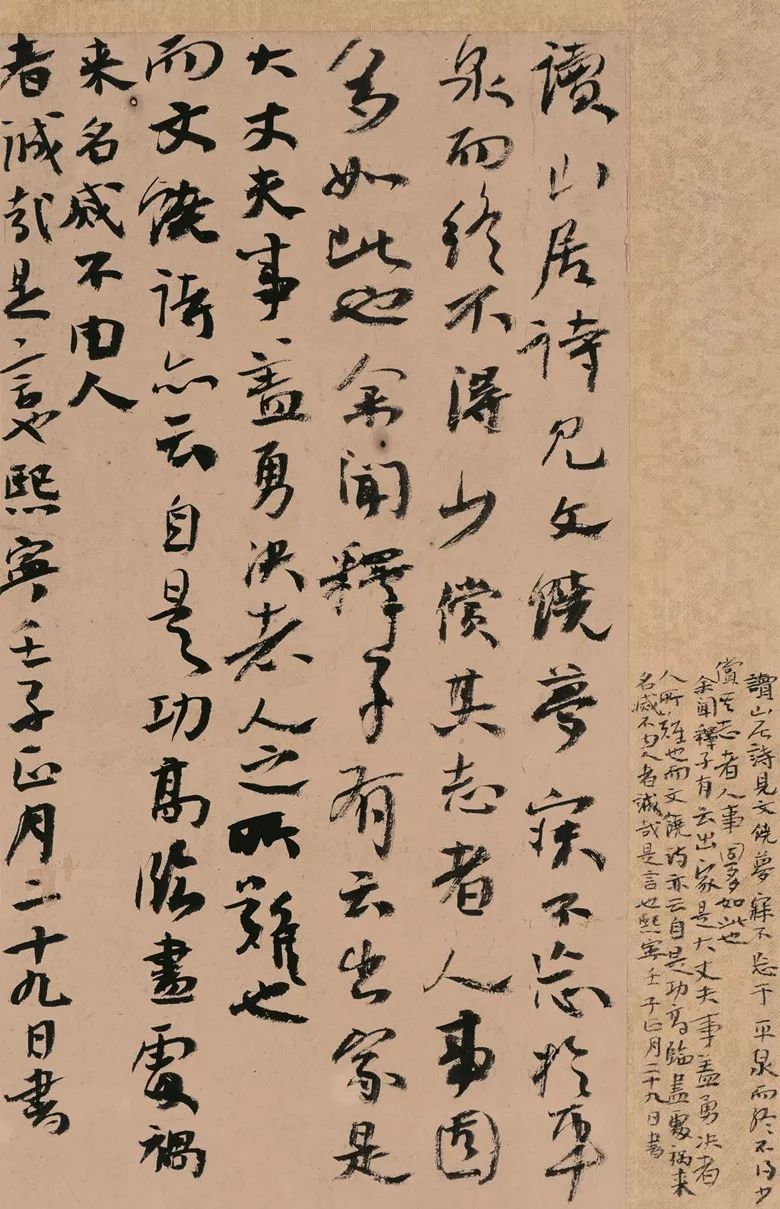 讀山居詩見文饒夢寐不忘於平
泉而終不得少償其志者人事固
多如此也余聞釋子有云出家是
大丈夫事蓋勇決者人之所難也
而文饒詩亦云自是功高臨盡處禍
来名滅不由人
者誠哉是言也熙寧壬子正月二十九日書
讀山居詩見文饒夢寐不忘于平泉而終不得少
償其志者人事固多如此也
余聞釋子有云出家是大丈夫事蓋勇决者
人所難也而文饒詩亦云自是功高臨盡處禍来
名滅不由人者誠哉是言也熙寧壬子正月二十九日書